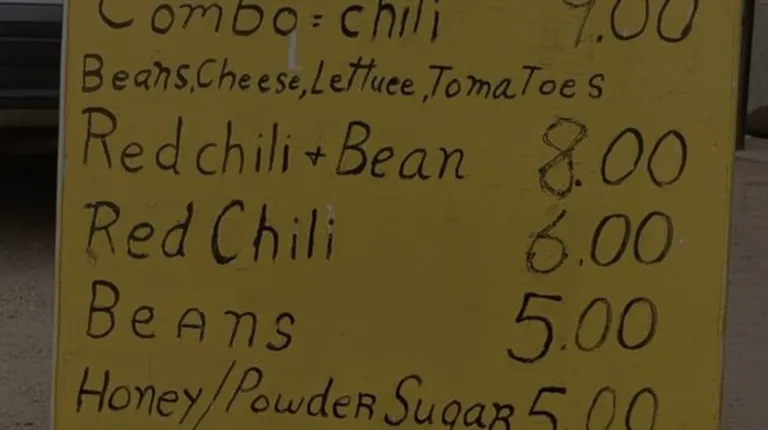 Combo = chili 9.00
Beans, Cheese, Lettuce, TomaToes
Red chili + Bean 8.00
Red Chili 6.00
BeAns 5.00
Honey/PowdeR SugaR 5.00